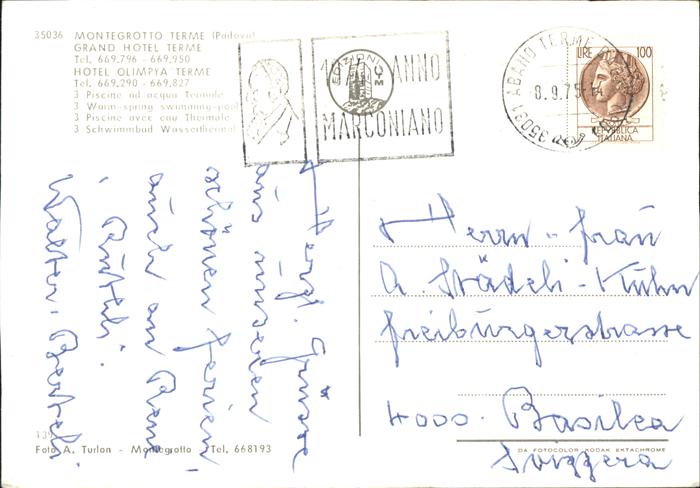 35036 MONTEGROTTO TERME (Padova)
GRAND HOTEL TERME
Tel. 669.796 - 669.950
HOTEL OLIMPYA TERME
Tel. 669.290 - 669.827
3 Piscine ad acqua Termale
3 Warm-spring swimming-pool
3 Piscine avec eau Thermale
3 Schwimmbad Wasserthermal
EDIZIONI
ANNO
MARCONIANO
35031 ABANO TERME
8.9.75
LIRE 100
REPVBBLICA
ITALIANA
Herzl. Grüsse
aus unseren
schönen Ferien
auch an René
Walter, Berteli
Herrn - Frau
A. Städeli-Kuhn
Freiburgerstrasse
4000. Basilea
Svizzera
139
Foto A. Turlon - Montegrotto - Tel. 668193
DA FOTOCOLOR KODAK EKTACHROME